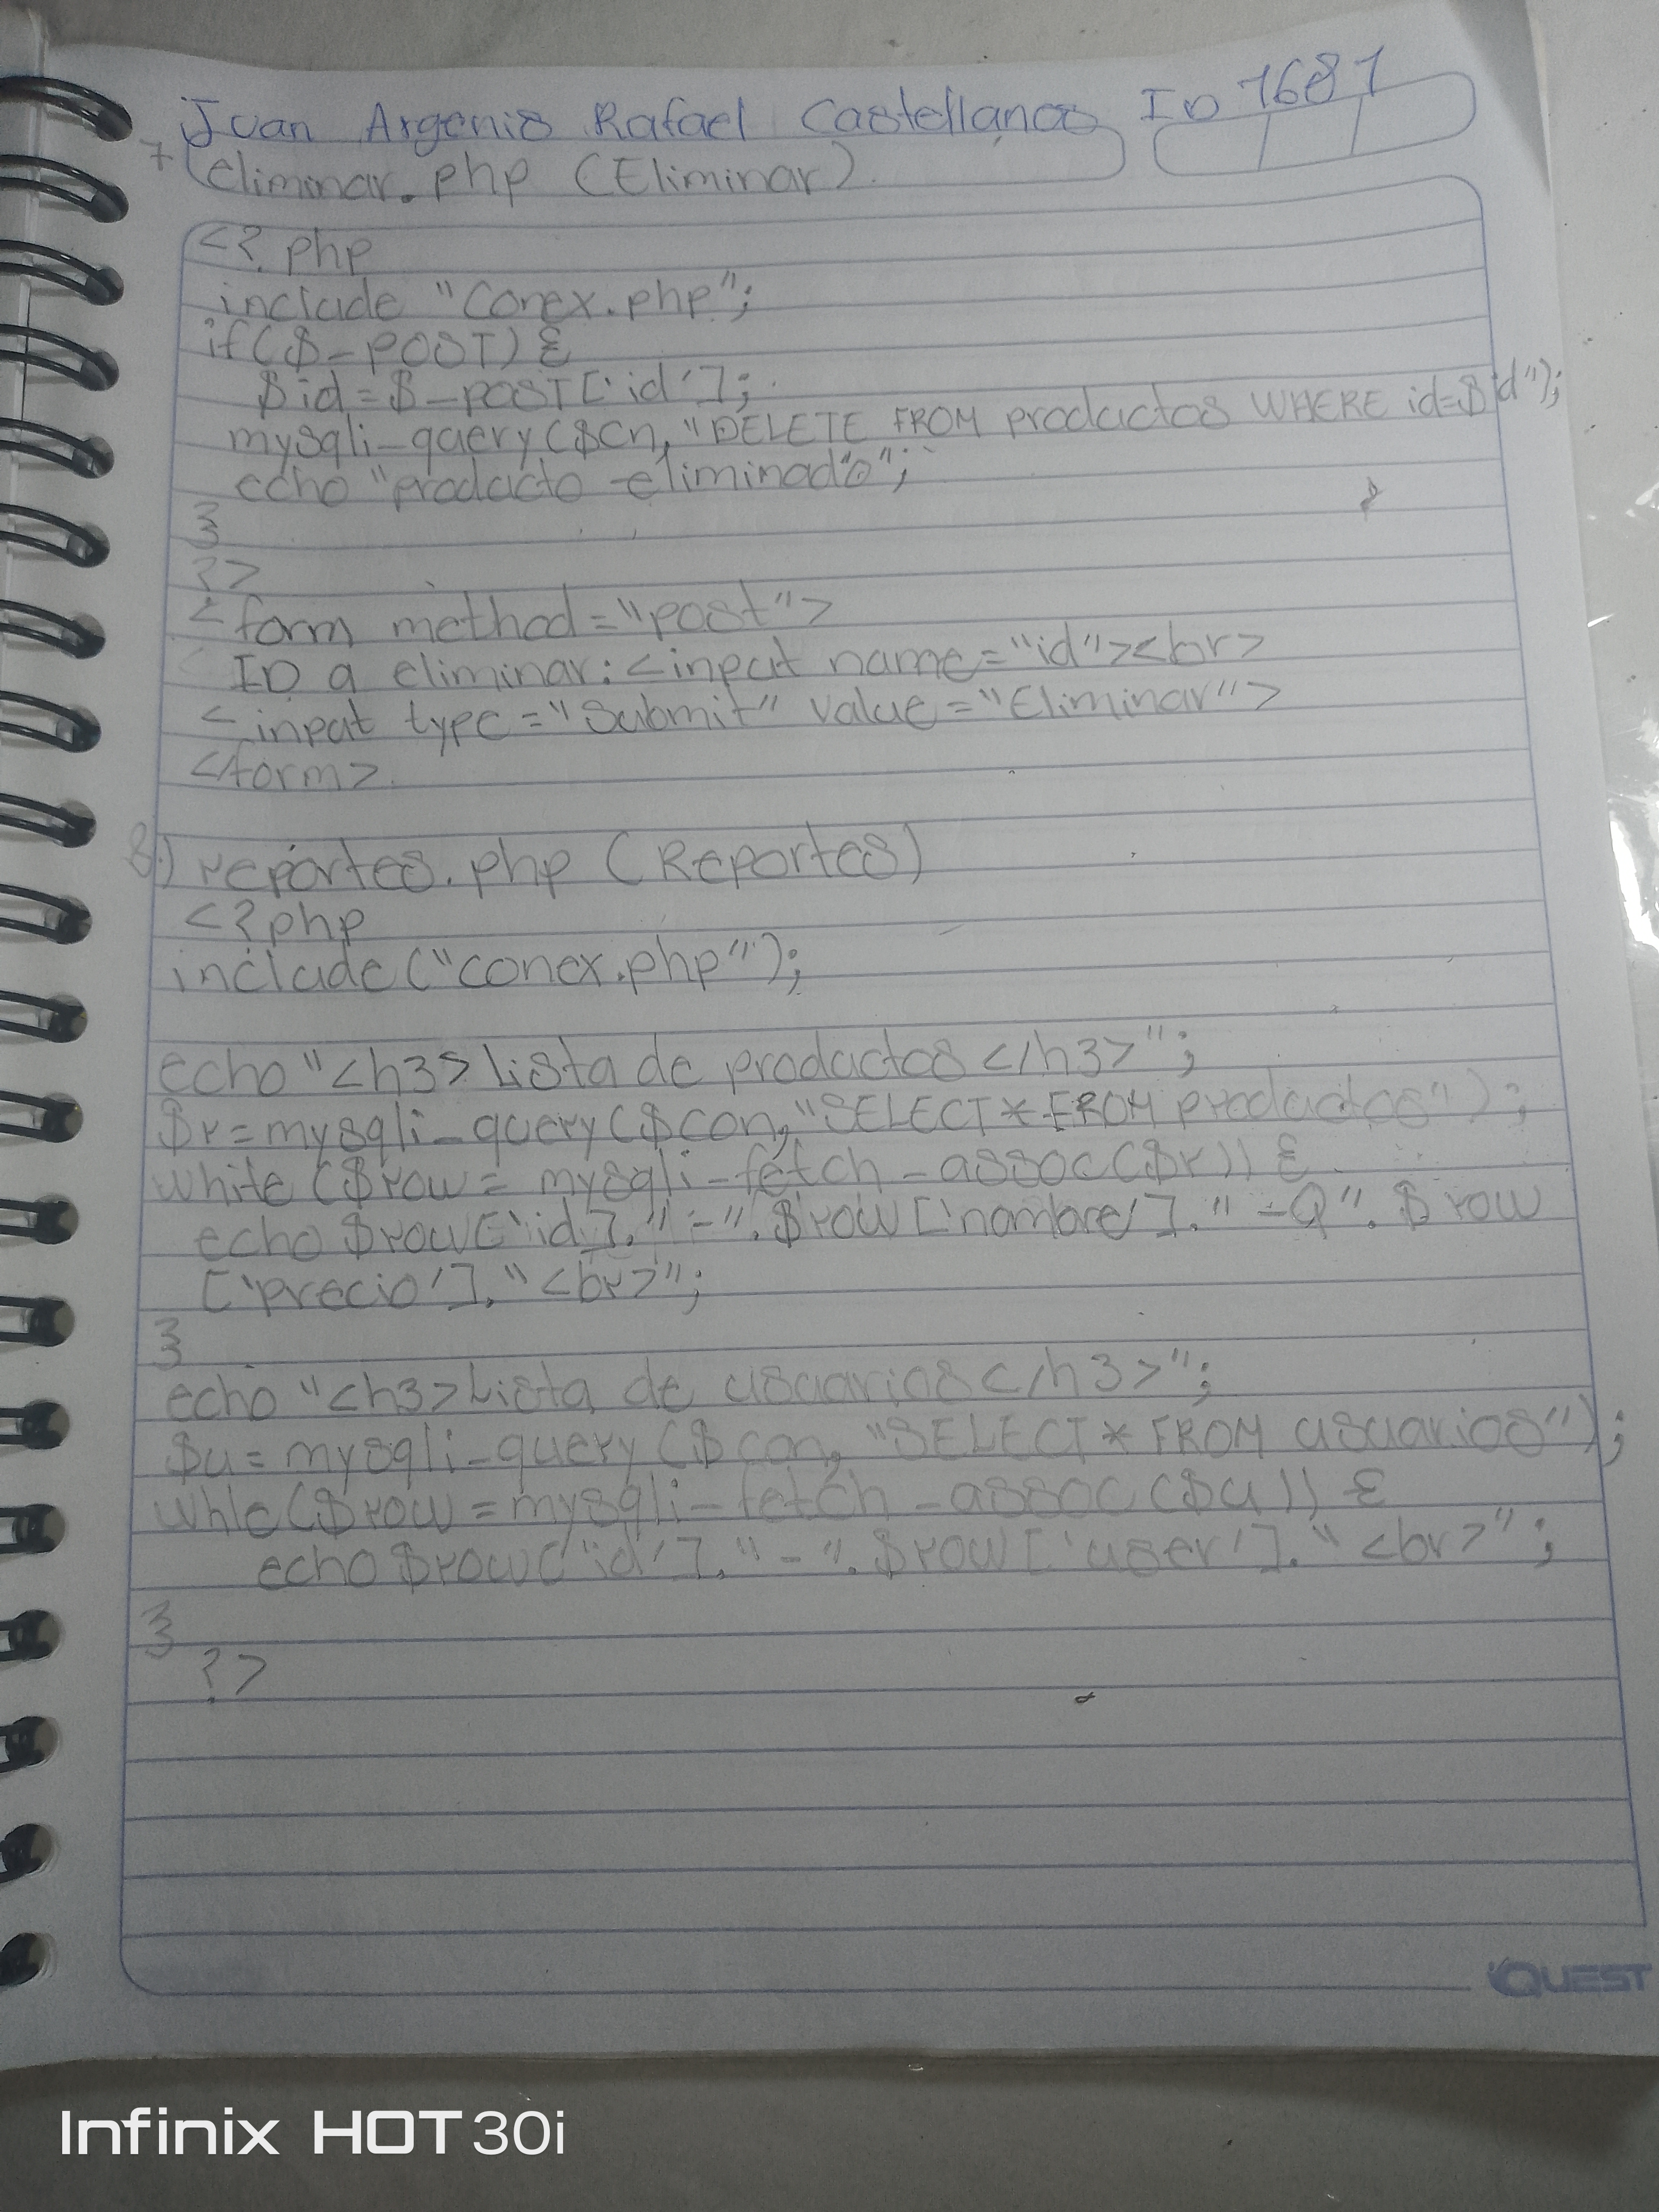 Juan Argenis Rafael Castellanos ID 1681
7 eliminar.php (Eliminar).
<?php
include "Conex.php";
if($_POST) {
$id=$_POST['id'];
mysqli_query($Cn, "DELETE FROM productos WHERE id=$id");
echo "producto eliminado";
}
?>
<form method="post">
ID a eliminar: <input name="id"><br>
<input type="Submit" value="Eliminar">
</form>.
8.) reportes.php (Reportes)
<?php
include("conex.php");
echo "<h3>Lista de productos</h3>";
$r=mysqli_query($con,"SELECT*FROM productos");
while ($row = mysqli_fetch_assoc($r)) {
echo $row['id]."-".$row['nombre']." -Q".$row
['precio']."<br>";
}
echo "<h3>Lista de usuarios</h3>";
$u=mysqli_query($con, "SELECT*FROM usuarios");
whle($row=mysqli_fetch_assoc($u)) {
echo $row['id']." - ".$row['user']."<br>";
}
?>
QUEST
Infinix HOT 30i